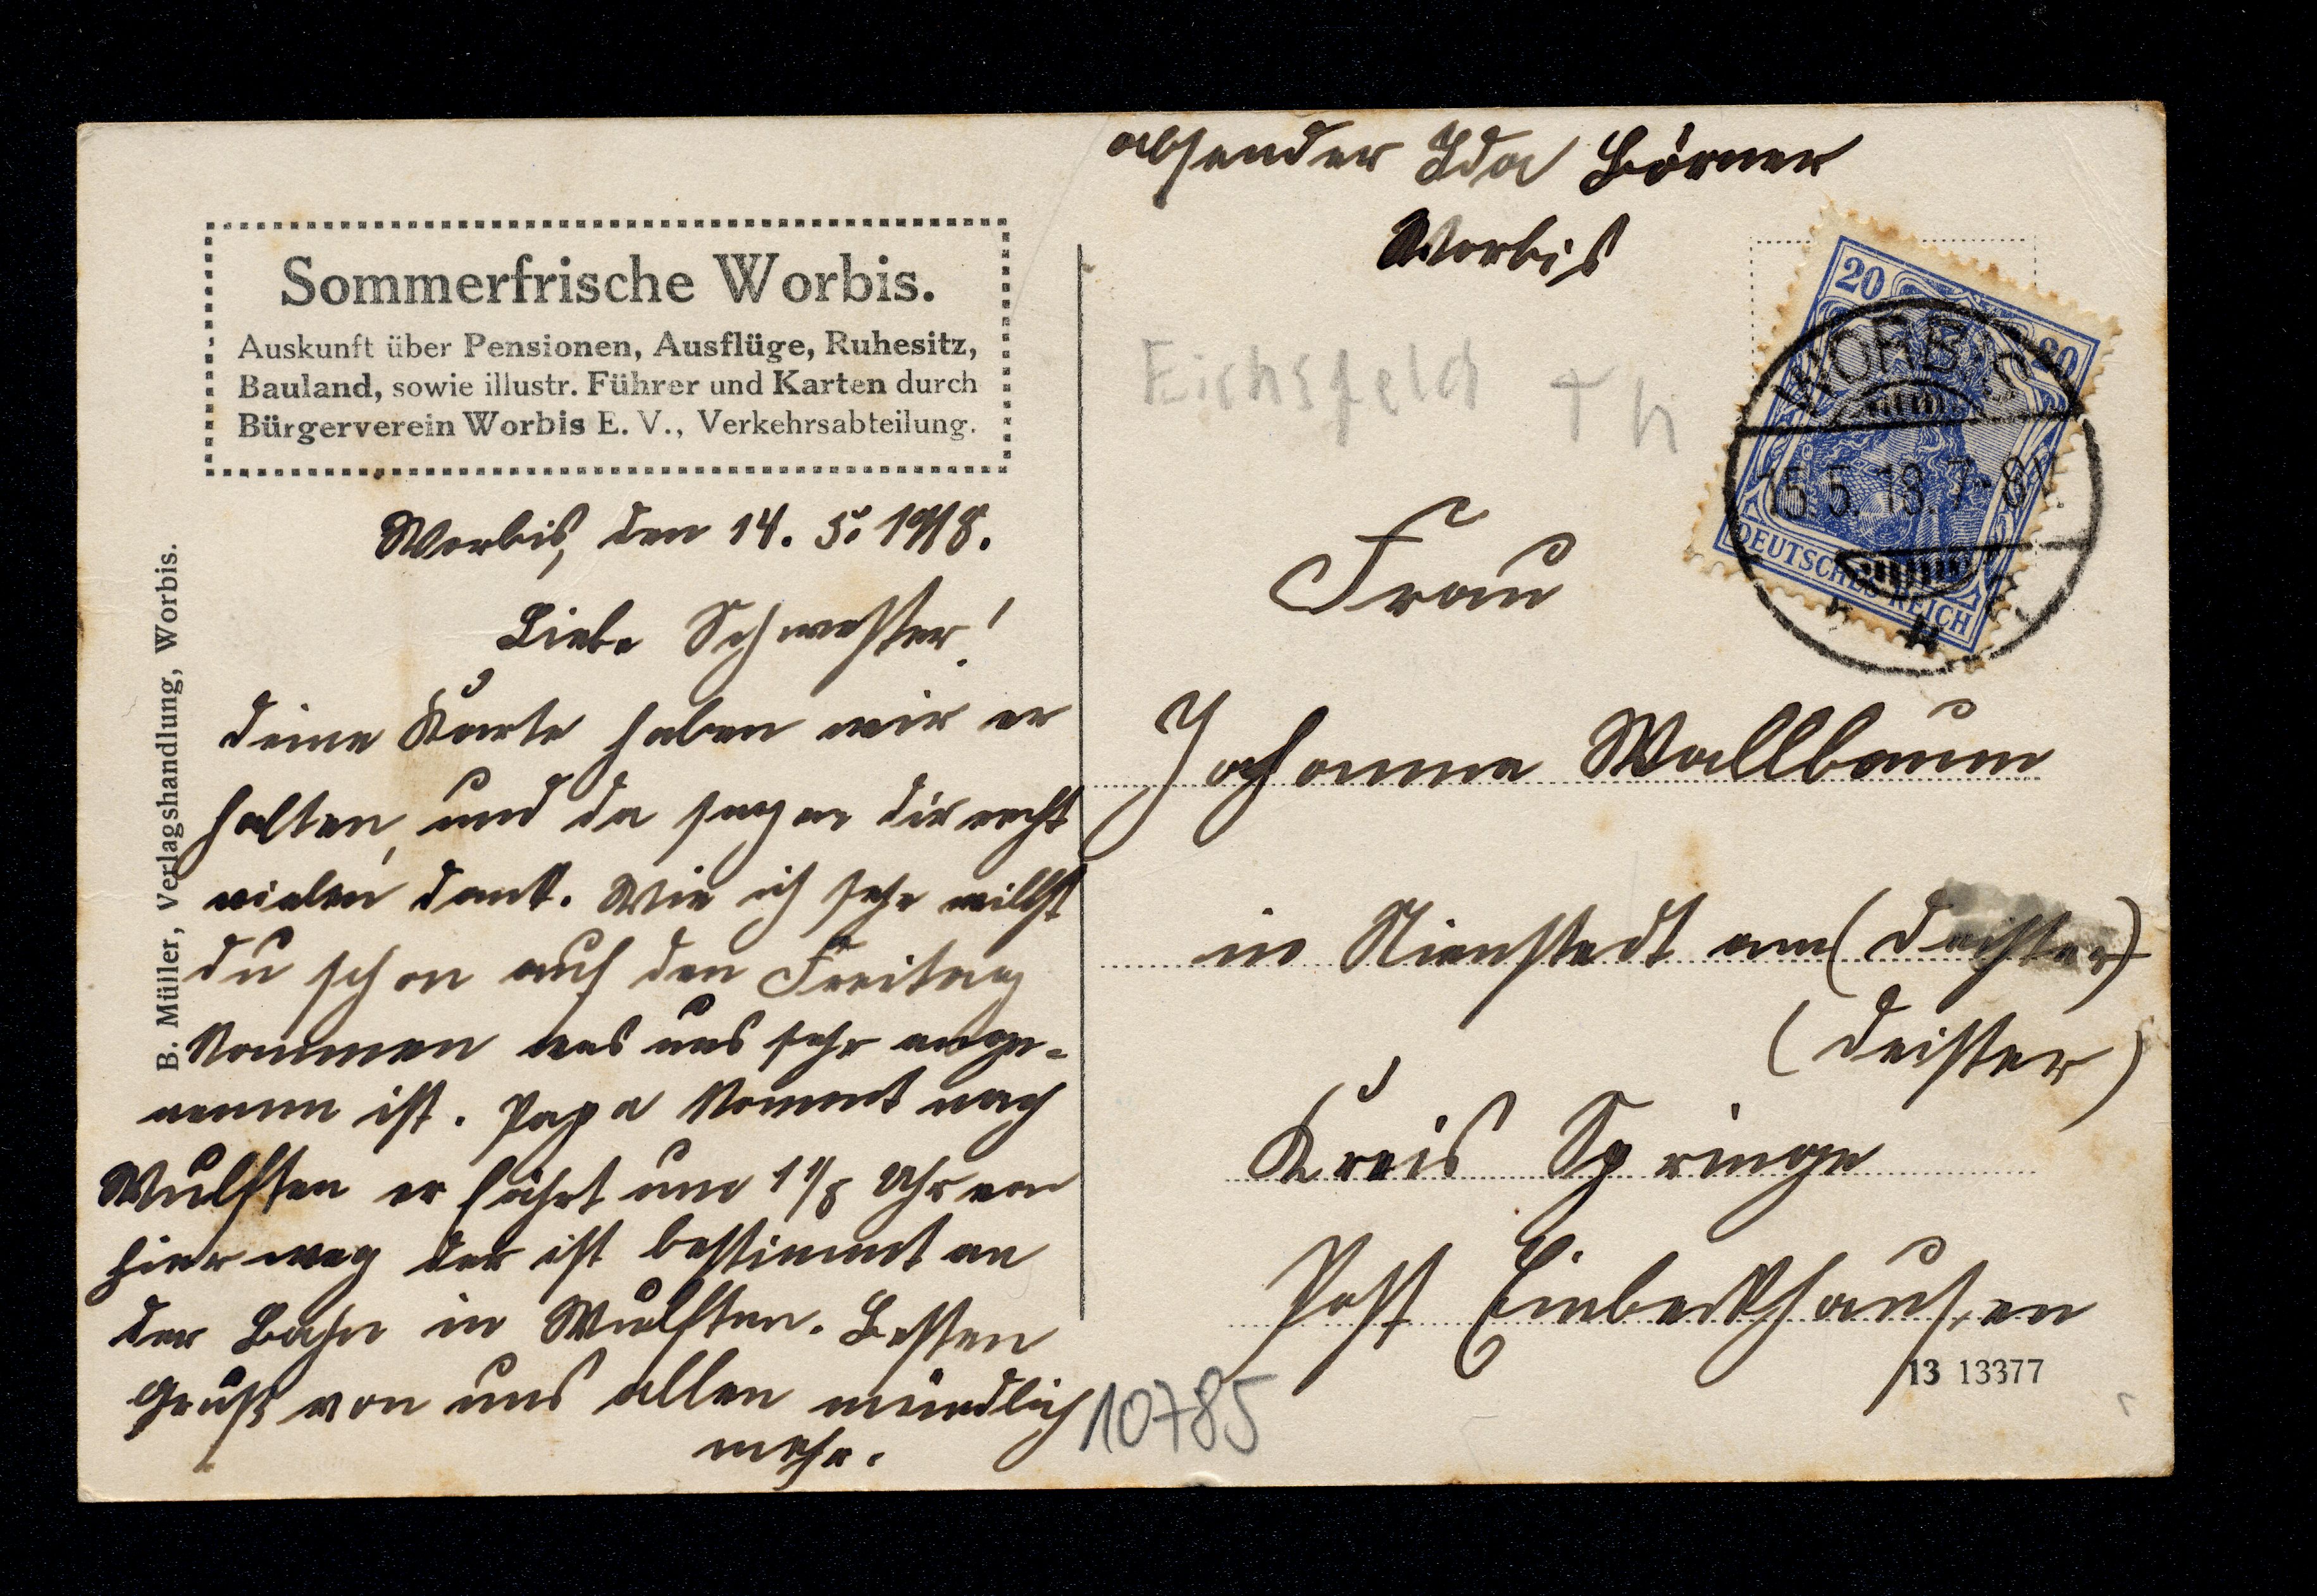 Sommerfrische Worbis.
Auskunft über Pensionen, Ausflüge, Ruhesitz,
Bauland, sowie illustr. Führer und Karten durch
Bürgerverein Worbis E. V., Verkehrsabteilung.
B. Müller, Verlagshandlung, Worbis.
Worbis, den 14. 5. 1918.
Liebe Schwester!
deine Karte haben wir er
halten, und da sagen dir recht
vielen dank. Wie ich sehe willst
du schon auf den Freitag
kommen was uns sehr ange-
nemm ist. Papa kommt nach
Wulften er fährt um Uhr von
hier weg der ist bestimmt an
der Bahn in Wulften. Besten
Gruß von uns allen mündlich
mehr.
absender Ida Börner
Worbis
Eichsfeld Th
20 20
DEUTSCHES REICH
WORBIS
15.5.18.7-8V.
Frau
Johanne Wallbaum
in Nienstedt am (Deister)
(Deister)
Kreis Springe
Post Einbeckhausen
13 13377
10785